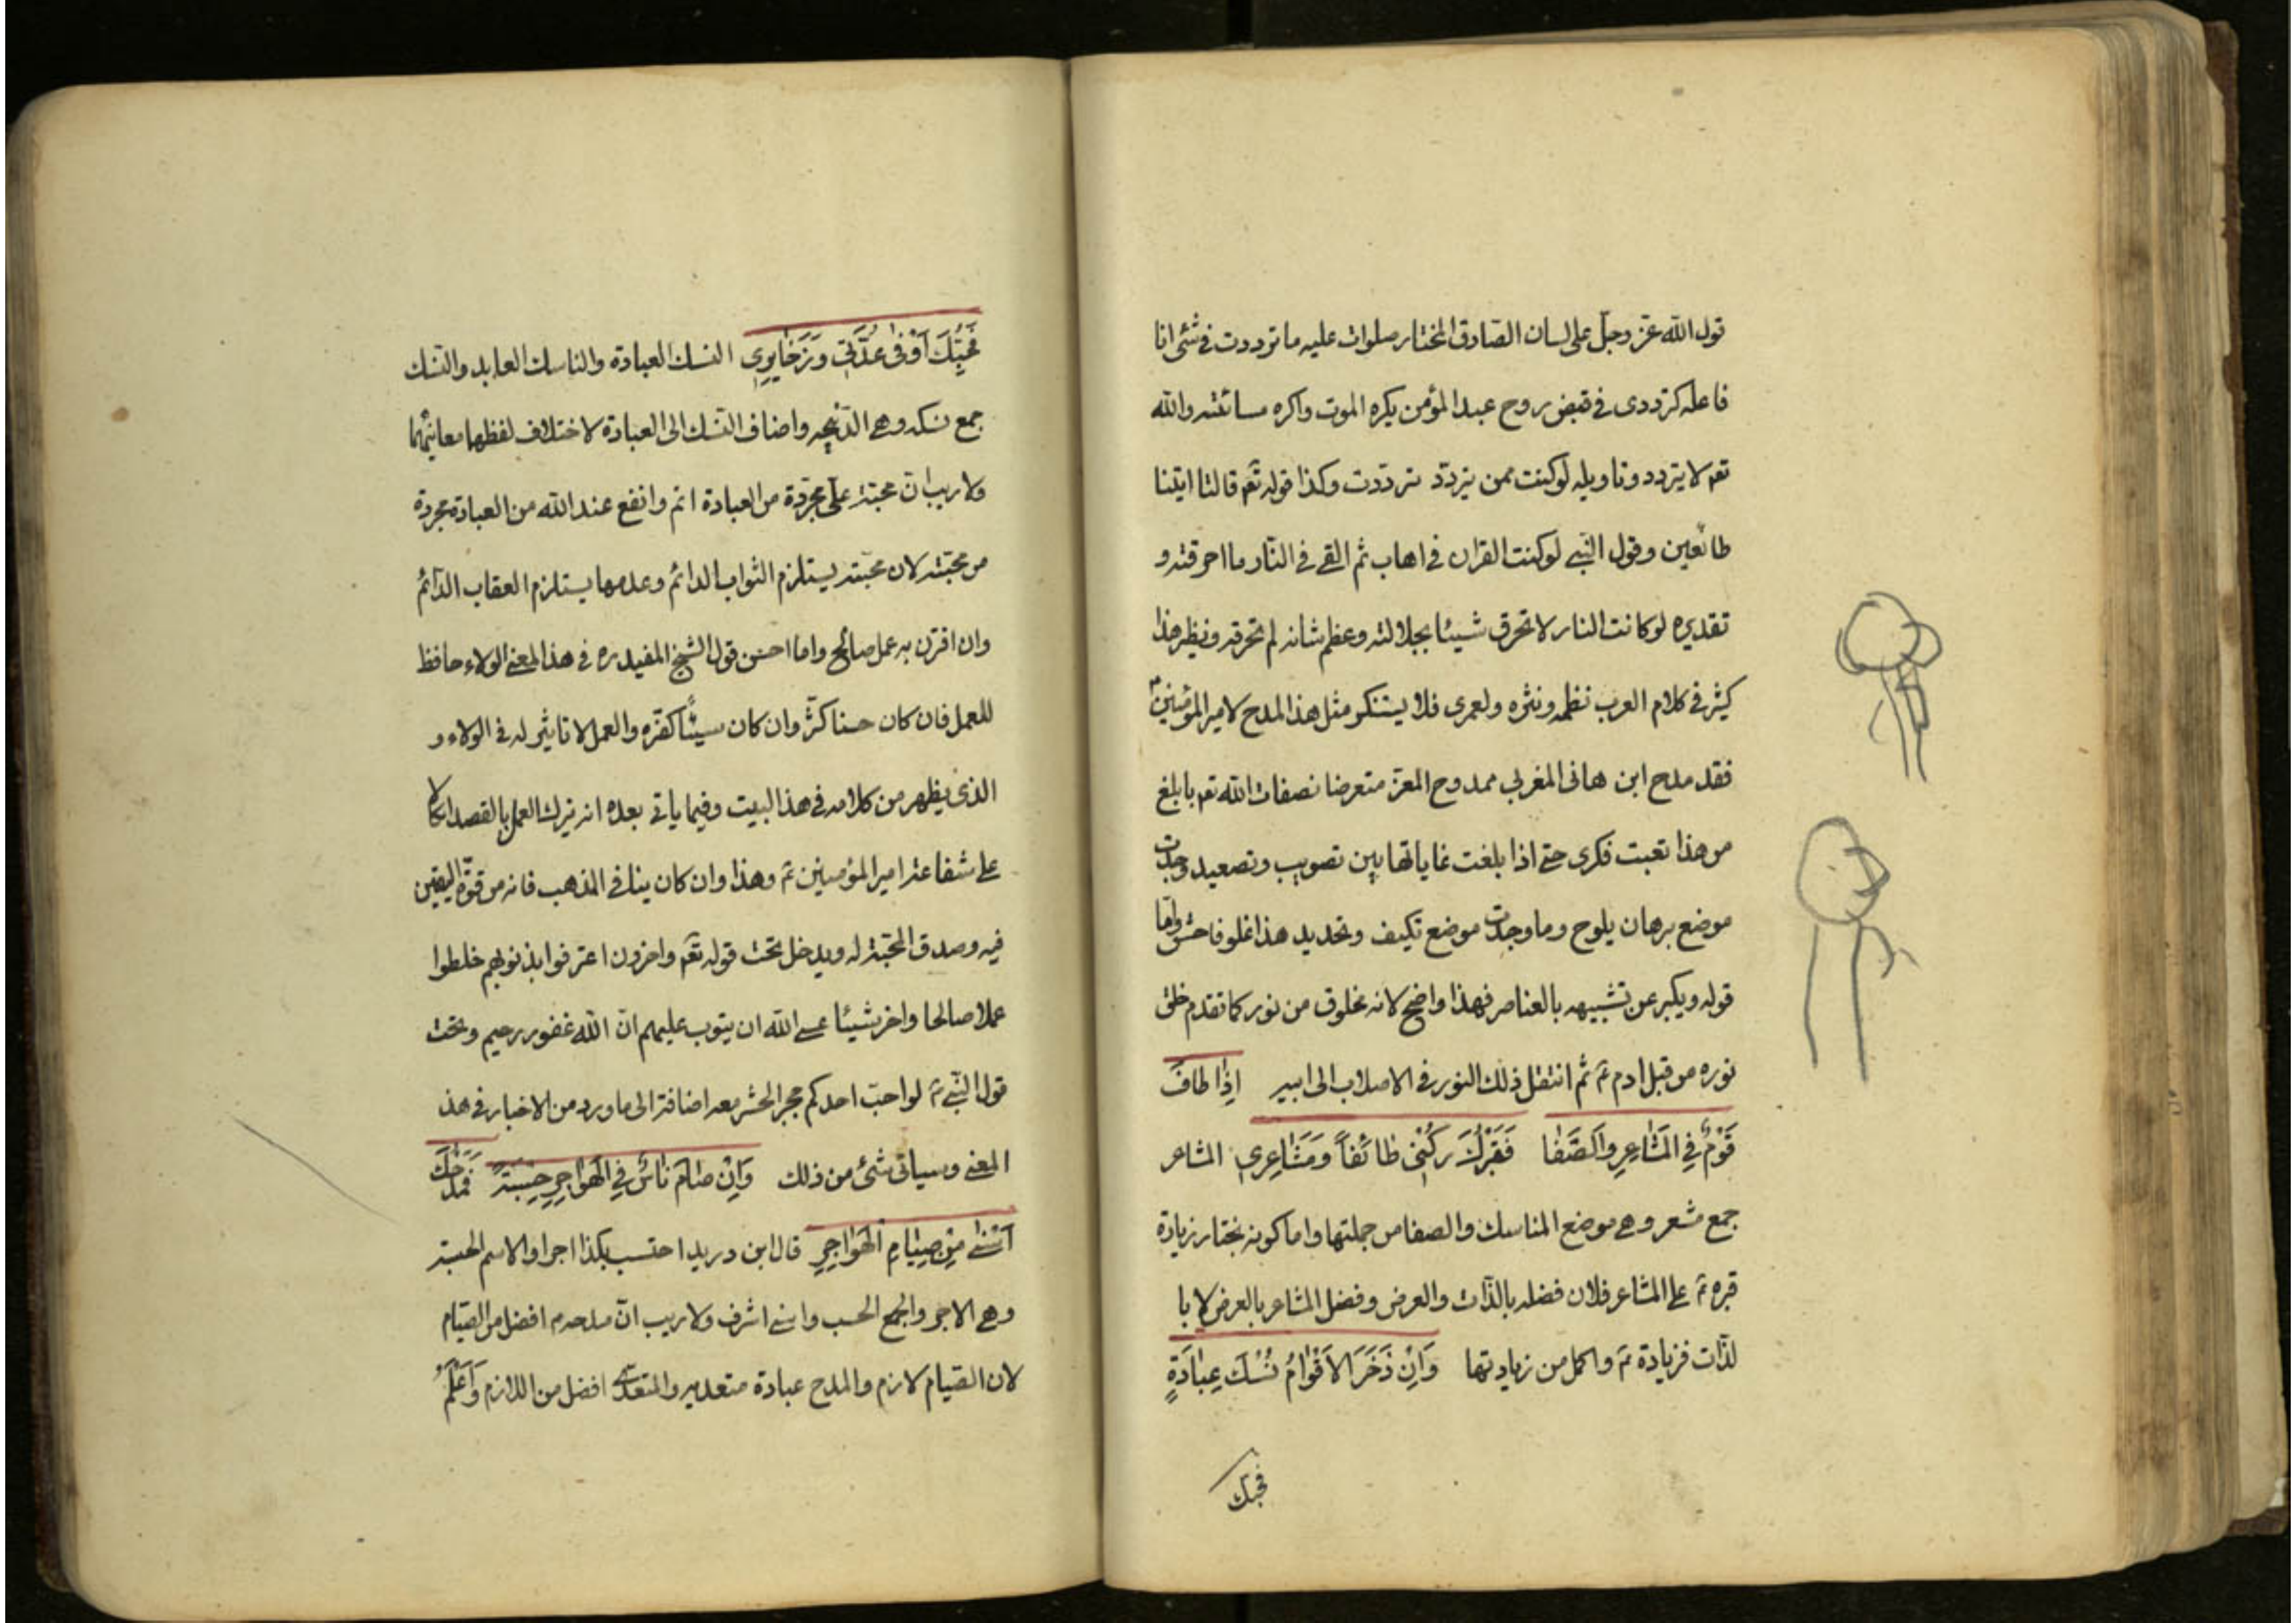 قول الله عزّ وجلّ على لسان الصّادق المختار صلوات عليه ما ترددت فى شئ انا
فاعله كترددى فى قبض روح عبد المؤمن يكره الموت واكره مسائته والله
تعم لا يتردد وتاويله لوكنت ممن يتردّد ترددّت وكذا قوله تعم قالتا اتينا
طائعين وقول النبى لوكنت القران فى اهاب ثم القى فى النّار ما احرقته و
تقديره لوكانت النار لا تحرق شيئا بجلالته وعظم شانه لم تحرقه ونظير هذا
كثير فى كلام العرب نظمه ونثره ولعمرى فلا يستنكر مثل هذا المدح لامير المؤمنين
فقد مدح ابن هانى المغربي ممدوح المعزّ متعرضا نصفات الله تعم بابلغ
من هذا تعبت فكرى حتى اذا بلغت غاياتها بين تصويب وتصعيد وجدت
موضع برهان يلوح وما وجدت موضع تكيف وتحديد هذا غلو فاحش وامّا
قوله ويكبر عن تشبيهه بالعناصر فهذا واضح لانه مخلوق من نور كما تقدم خلق
نوره من قبل ادم ثم ثم انتقل ذلك النور فى الاصلاب الى ابيه اِذٰا طافَ
قَوْمٌ فِى المَشٰاعِرِ وَالصَّفٰا فَقَبْرُكَ رُكْنى طٰائفاً وَمَشٰاعِرى المشاعر
جمع مشعر وهى موضع المناسك والصفا من جملتها واما كونه يختار زيارة
قبره ثم على المشاعر فلان فضله بالذّات والعرض وفضل المشاعر بالعرض لا با
لذّات فزيادة ثم واكمل من زيادتها وَاِنْ ذَخَرَ الاَقْوٰامُ نُسْكَ عِبٰادَةٍ
فحبك
فَحُبُّكَ اَوْفٰى عُدَّتى وَذَخٰايِرى النسك العبادة والناسك العابد والنسك
جمع نسكه وهى الذّبيحه واضاف النسك الى العبادة لاختلاف لفظهما معانيهما
ولا ريب انّ محبّته على مجرّدة من العبادة اتم وانفع عند الله من العبادة مجردة
من محبّته لان محبّته يستلزم الثواب الدائم وعدمها يستلزم العقاب الدّائم
وان اقترن به عمل صالح واما احسن قول الشيخ المفيد ره فى هذا المعنى الولاء حافظ
للعمل فان كان حسنا كثّر وان كان سيئًا كفّره والعمل لا تاثير له فى الولاء و
الذى يظهر من كلامه فى هذا البيت وفيما ياتى بعده انه يترك العمل بالقصد اتكالا
على شفاعة امير المؤمنين ثم وهذا وان كان ينافى المذهب فانه من قوّة اليقين
فيه وصدق المحبّة له ويدخل تحت قوله تعم واخرون اعترفوا بذنوبهم خلطوا
عملا صالحا واخر شيئا عسى الله ان يتوب عليهم انّ الله غفور رحيم وتحت
قول النّبى ثم لو احبّ احدكم حجر الحشر معه اضافة الى ما ورد من الاخبار فى هذ
المعنى وسياتى شئ من ذلك وَاِنْ صٰامَ نٰاسٌ فِى الهَوٰاجِرِ حِسْبَةً فَمَدْحُكَ
اَسْنىٰ مِنْ صِيٰامِ الْهَوٰاجِرِ قال ابن دريد احتسب بكذا اجرا والاسم الحسبة
وهى الاجر والجمع الحسب واسنى اشرف ولا ريب انّ مدحه م افضل من الصّيام
لان الصّيام لازم والمدح عبادة متعديه والمتعدّى افضل من اللازم وَاَعْلَمُ